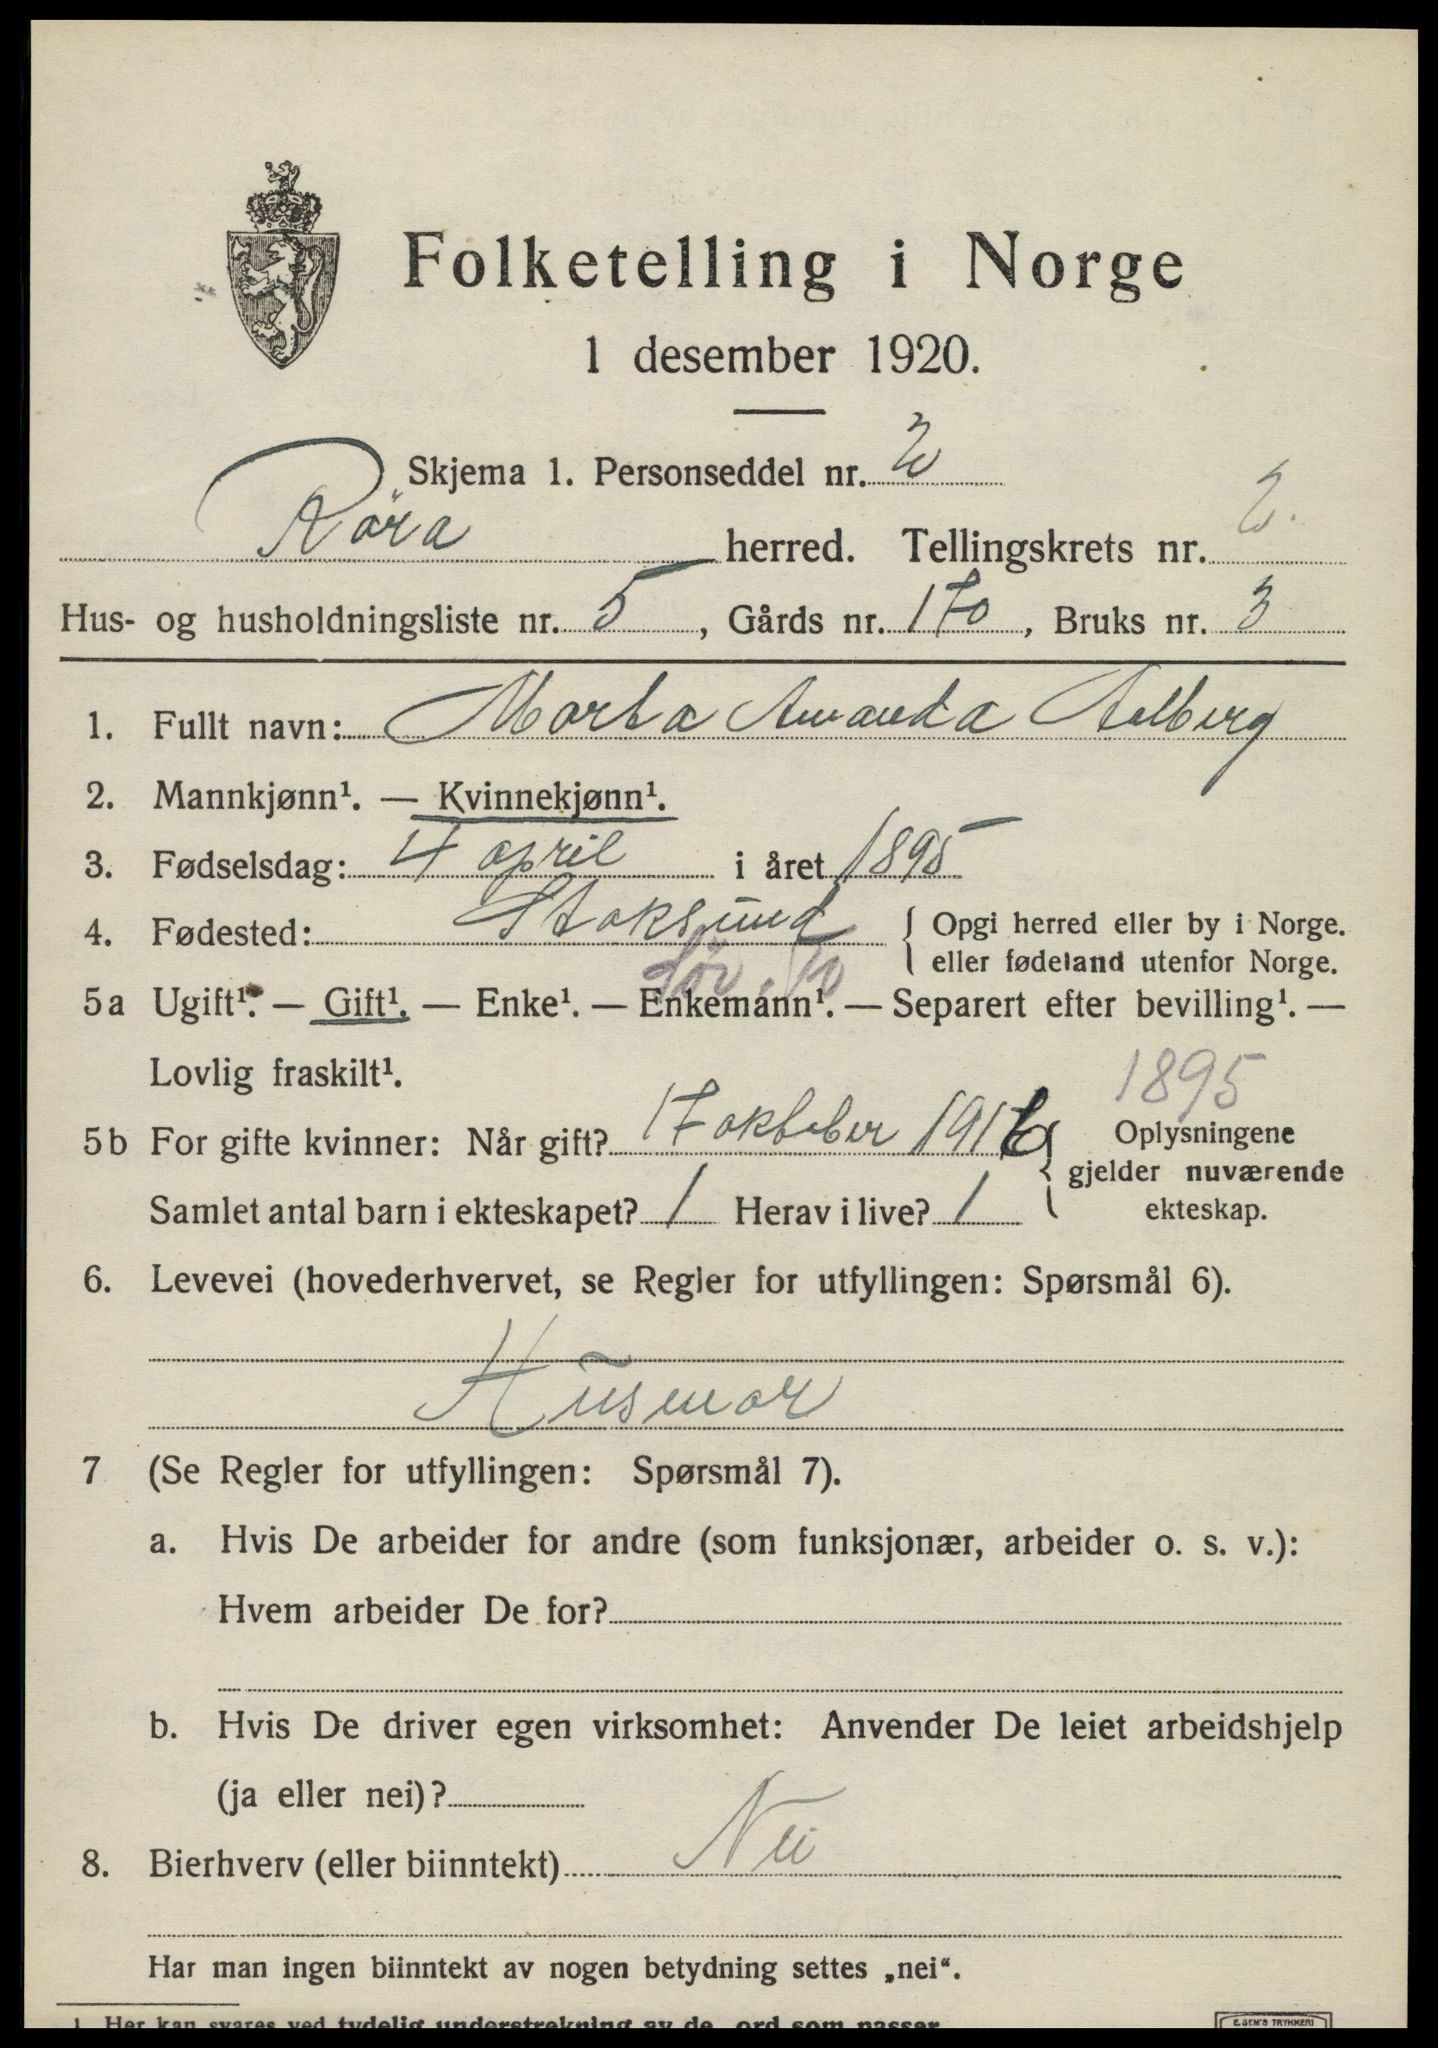 Folketelling i Norge
1 desember 1920.
Skjema 1. Personseddel nr. 2
Röra herred. Tellingskrets nr. 2.
Hus- og husholdningsliste nr. 5, Gårds nr. 170, Bruks nr. 3
1. Fullt navn: Marta Amanda Aalberg
2. Mannkjønn¹. — Kvinnekjønn¹.
3. Fødselsdag: 4 april i året 1895
4. Fødested: Stoksund { Opgi herred eller by i Norge.
eller fødeland utenfor Norge.
Sör. Tr
5a Ugift¹. — Gift¹. — Enke¹. — Enkemann¹. — Separert efter bevilling¹. —
Lovlig fraskilt¹.
1895
5b For gifte kvinner: Når gift? 17 oktober 1919 Oplysningene
gjelder nuværende
Samlet antal barn i ekteskapet? 1 Herav i live? 1 ekteskap.
6. Levevei (hovederhvervet, se Regler for utfyllingen: Spørsmål 6).
Husmor
7 (Se Regler for utfyllingen: Spørsmål 7).
a. Hvis De arbeider for andre (som funksjonær, arbeider o. s. v.):
Hvem arbeider De for?
b. Hvis De driver egen virksomhet: Anvender De leiet arbeidshjelp
(ja eller nei)?
8. Bierhverv (eller biinntekt) Nei
Har man ingen biinntekt av nogen betydning settes „nei“.
1 Her kan svares ved tydelig understrekning av de ord som passer.